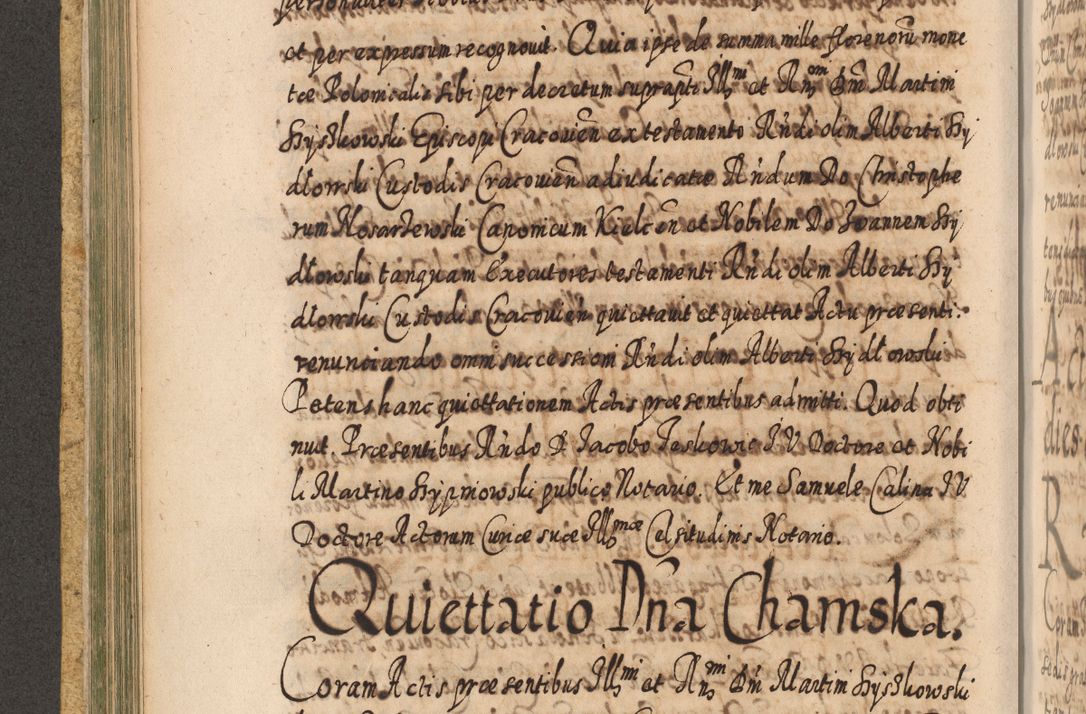 et per expressum recognovit. Quia ipse de summa mille florenorũ mone
tæ Polonicalis sibi per decretum suprapti Illmi et Rndmi Dm̃ Martini
Szyszkowski Episcopi Cracovien̄ ex testamento Rńdi olim Alberti Szy
dłowski Custodis Cracovien̄ adiudicatæ Rńdum Do Christophe
rum Kosarzewski Canonicum Kielcēn et Nobilem Do Joannem Szy
dłowski tanquam Executores testamenti Rńdi olim Alberti Szy
dłowski Custodis Cracovień quiettavit et quiettat Actu præsenti.
renunciando omni successioni Rńdi olim Alberti Szydłowski
Petens hanc quiettationem Actis præsentibus admitti. Quod obti
nuit. Præsentibus Rńdo D. Jacobo Jeskowic J.V. Doctore et Nobi
li Martino Szypniowski publico Notario. Et me Samuele Calina J.V.
Doctore Actorum Curiæ suæ Illmæ Celsitudinis Notario.
Quiettatio Dńa Chamska.
Coram Actis præsentibus Illmi et Rndmi Dńi Martini Szyszkowski